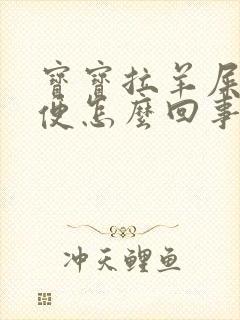 寶寶拉羊屎
便怎麼回事
冲天鲤鱼